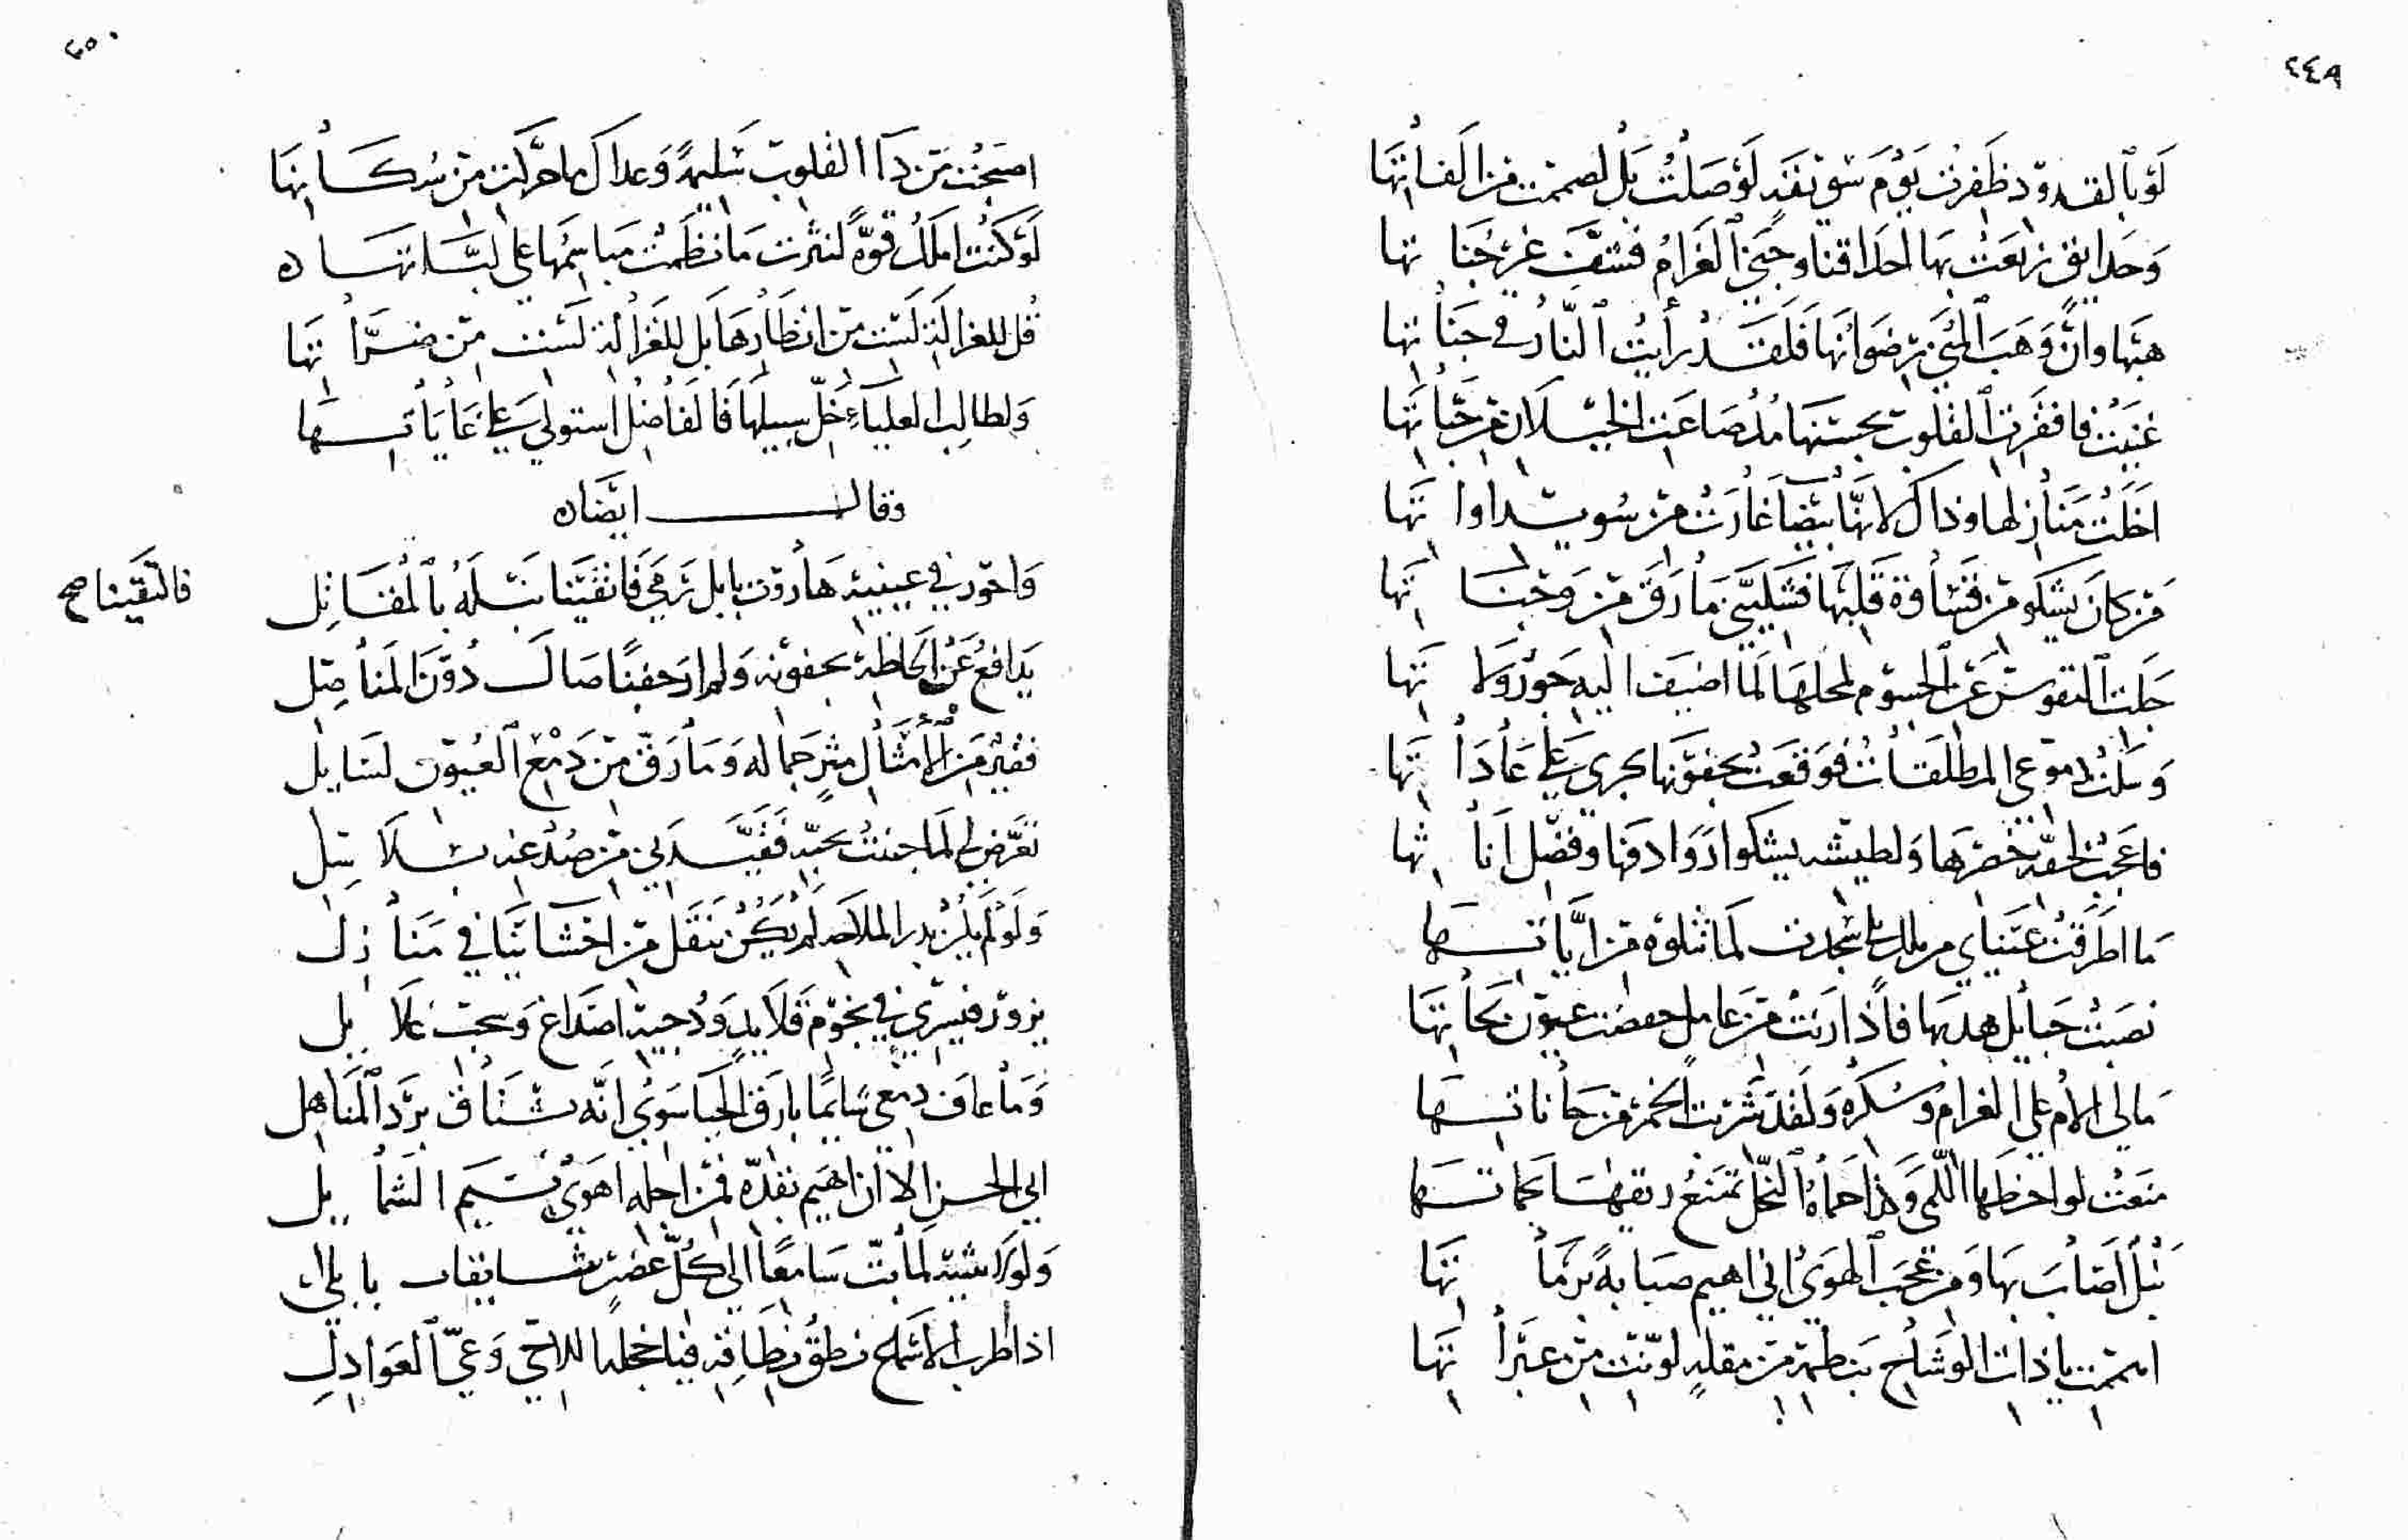 ٢٤٩
لَوْ بالقدود ظَفِرْتُ يَوْمَ تَفَنٍّ لَوَصَلْتُ بَلْ لضممت من الفاتها
وَحَدائق نزهت بها احداقنا وجنى الغرام فشفّ عن جناتها
هبها وان وَهَبَ المُنى رضوانها فلقد رأيت النار في جناتها
غنيت فافقرت القلوب بحسنها مذ ضاعت الخيلان من حباتها
اخلت منازلها وذاك لانها بيضا غارت من سويداواتها
من كان يشكو من قساوة قلبها فشكيتي ما رق من وجناتها
جلت النفوس عن الجسوم لمحلها لما اضيف اليه جور ولاتها
وسلت دموعي المطلقات فوقعت بجفونها تجري على عاداتها
فاعجب لخفة خصرها ولطيشه يشكو روادفها وفضل اناتها
ما اطرقت عيناي من بل سجدت لما تتلوه من اياتها
نصبت حبايل هدبها فاذا رنت من عامل خفضت عيون نحاتها
مالي الام على الغرام وسكره ولقد شربت الخمر من حاناتها
منعت لواحظها اللمى وكذا حماة النحل تمنع ريقها بحماتها
نبل اصاب بها ومن عجب الهوى اني اهيم صبابة برماتها
اسقمت يا ذات الوشاح بنظرة من مقلة لونت من عبراتها
٢٥٠
اصبحت من داء القلوب سليمة وعداك ما حركت من سكانها
لو كنت املك قوة لنثرت ما نظمت مباسمها على لباتها ه
قل للغزالة لست من انظارها بل للغزالة لست من ضراتها
ولطالب العلياء خل سبيلها فالفاضل استولى على غاياتها
وقال ايضا ه
واحور في عينيه هاروت بابل رمى فاتقينا نبله بالمقاتل
فالتقينا صح
يدافع عن الحاظه بجفونه ولم ار جفنا صال دون المناصل
فقير من الامثال مثر جماله وما رق من دمع العيون لسايل
تعرض لي لما جننت بحبه فقيدني من صدغه بسلاسل
ولو لم يكن بدر الملاحة لم يكن تنقل من احشائنا في منازل
يزور فيسري في نجوم قلايد ودجية اصداغ وسحب غلايل
وما عاف دمعي شايما بارق الحيا سوى انه يشتاق برد المناهل
ابى الحسن الا ان اهيم بقده فمن اجله اهوى نسيم الشمايل
ولولا تثنيه لما بت سامعا الى كل غصن بلابل
اذا طرب الاسماع نطق نطاقه فيا خجلة اللاحي وعي العواذل